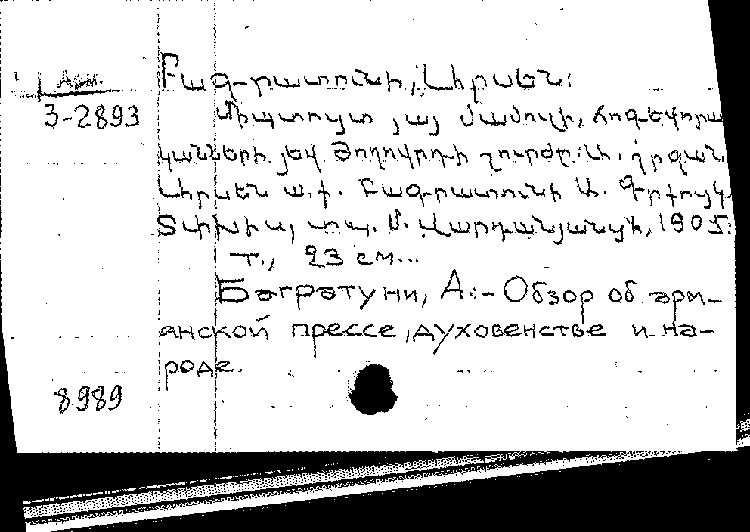 Арм.
3-2893
Բագրատունի, Նիրսեն:
հայ մամուլի, հոգևորա
կանների եվ ժողովրդի շուրջը:
Նիրսեն ա.ֆ. Բագրատունի Ա.
Տփխիս, տպ. Մ. Վարդանյանցի, 1905:
т., 23 см...
Багратуни, А.- Обзор об арм-
янской прессе, духовенстве и на-
роде.
8989